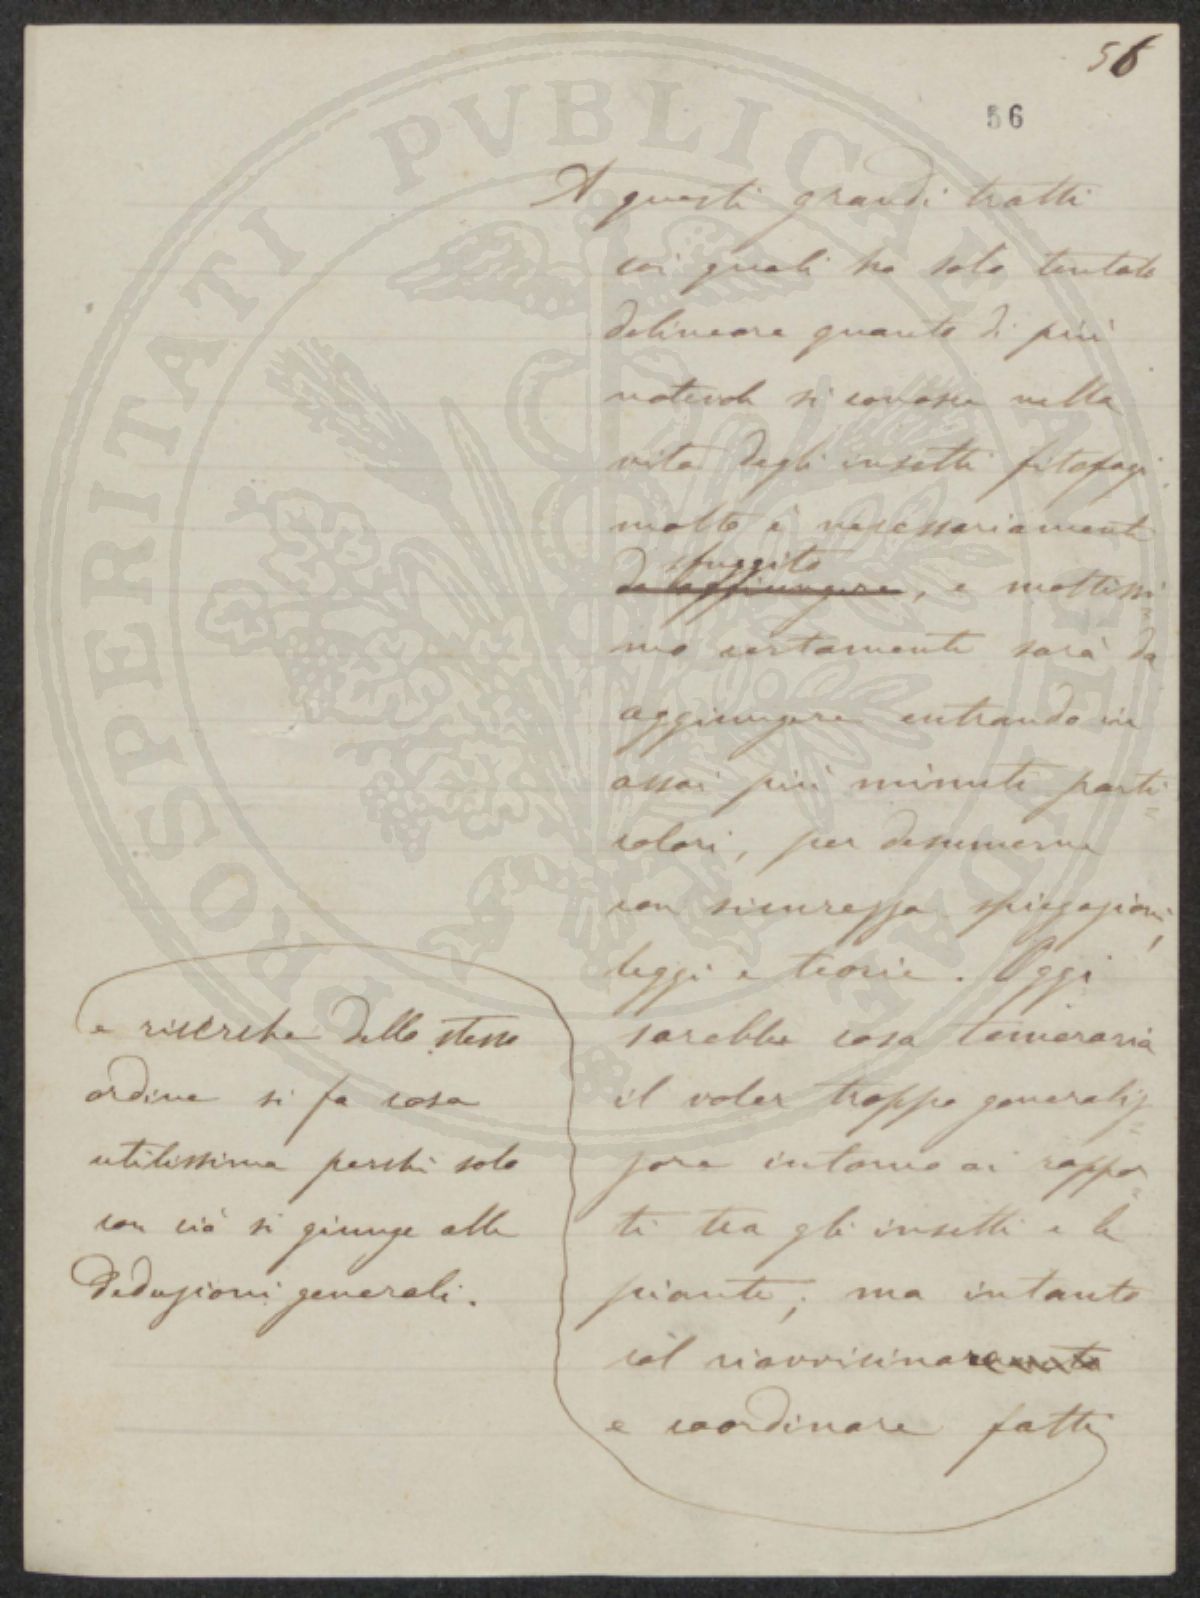 56
56
A questi grandi tratti
coi quali ho solo tentato
delineare quanto di più
notevole si conosce nella
vita degli insetti fitofagi
molto è necessariamente
sfuggito
da aggiungere, e moltissi
mo certamente sarà da
aggiungere entrando in
assai più minuti parti=
colari, per desumerne
con sicurezza spiegazioni,
leggi e teorie. Oggi
sarebbe cosa temeraria
il voler troppo generaliz=
zare intorno ai rappor=
ti tra gli insetti e le
piante; ma intanto
col riavvicinare
e coordinare fatti
e ricerche dello stesso
ordine si fa cosa
utilissima perchè solo
con ciò si giunge alle
deduzioni generali.
PROSPERITATI PVBLICAE AVGENDAE